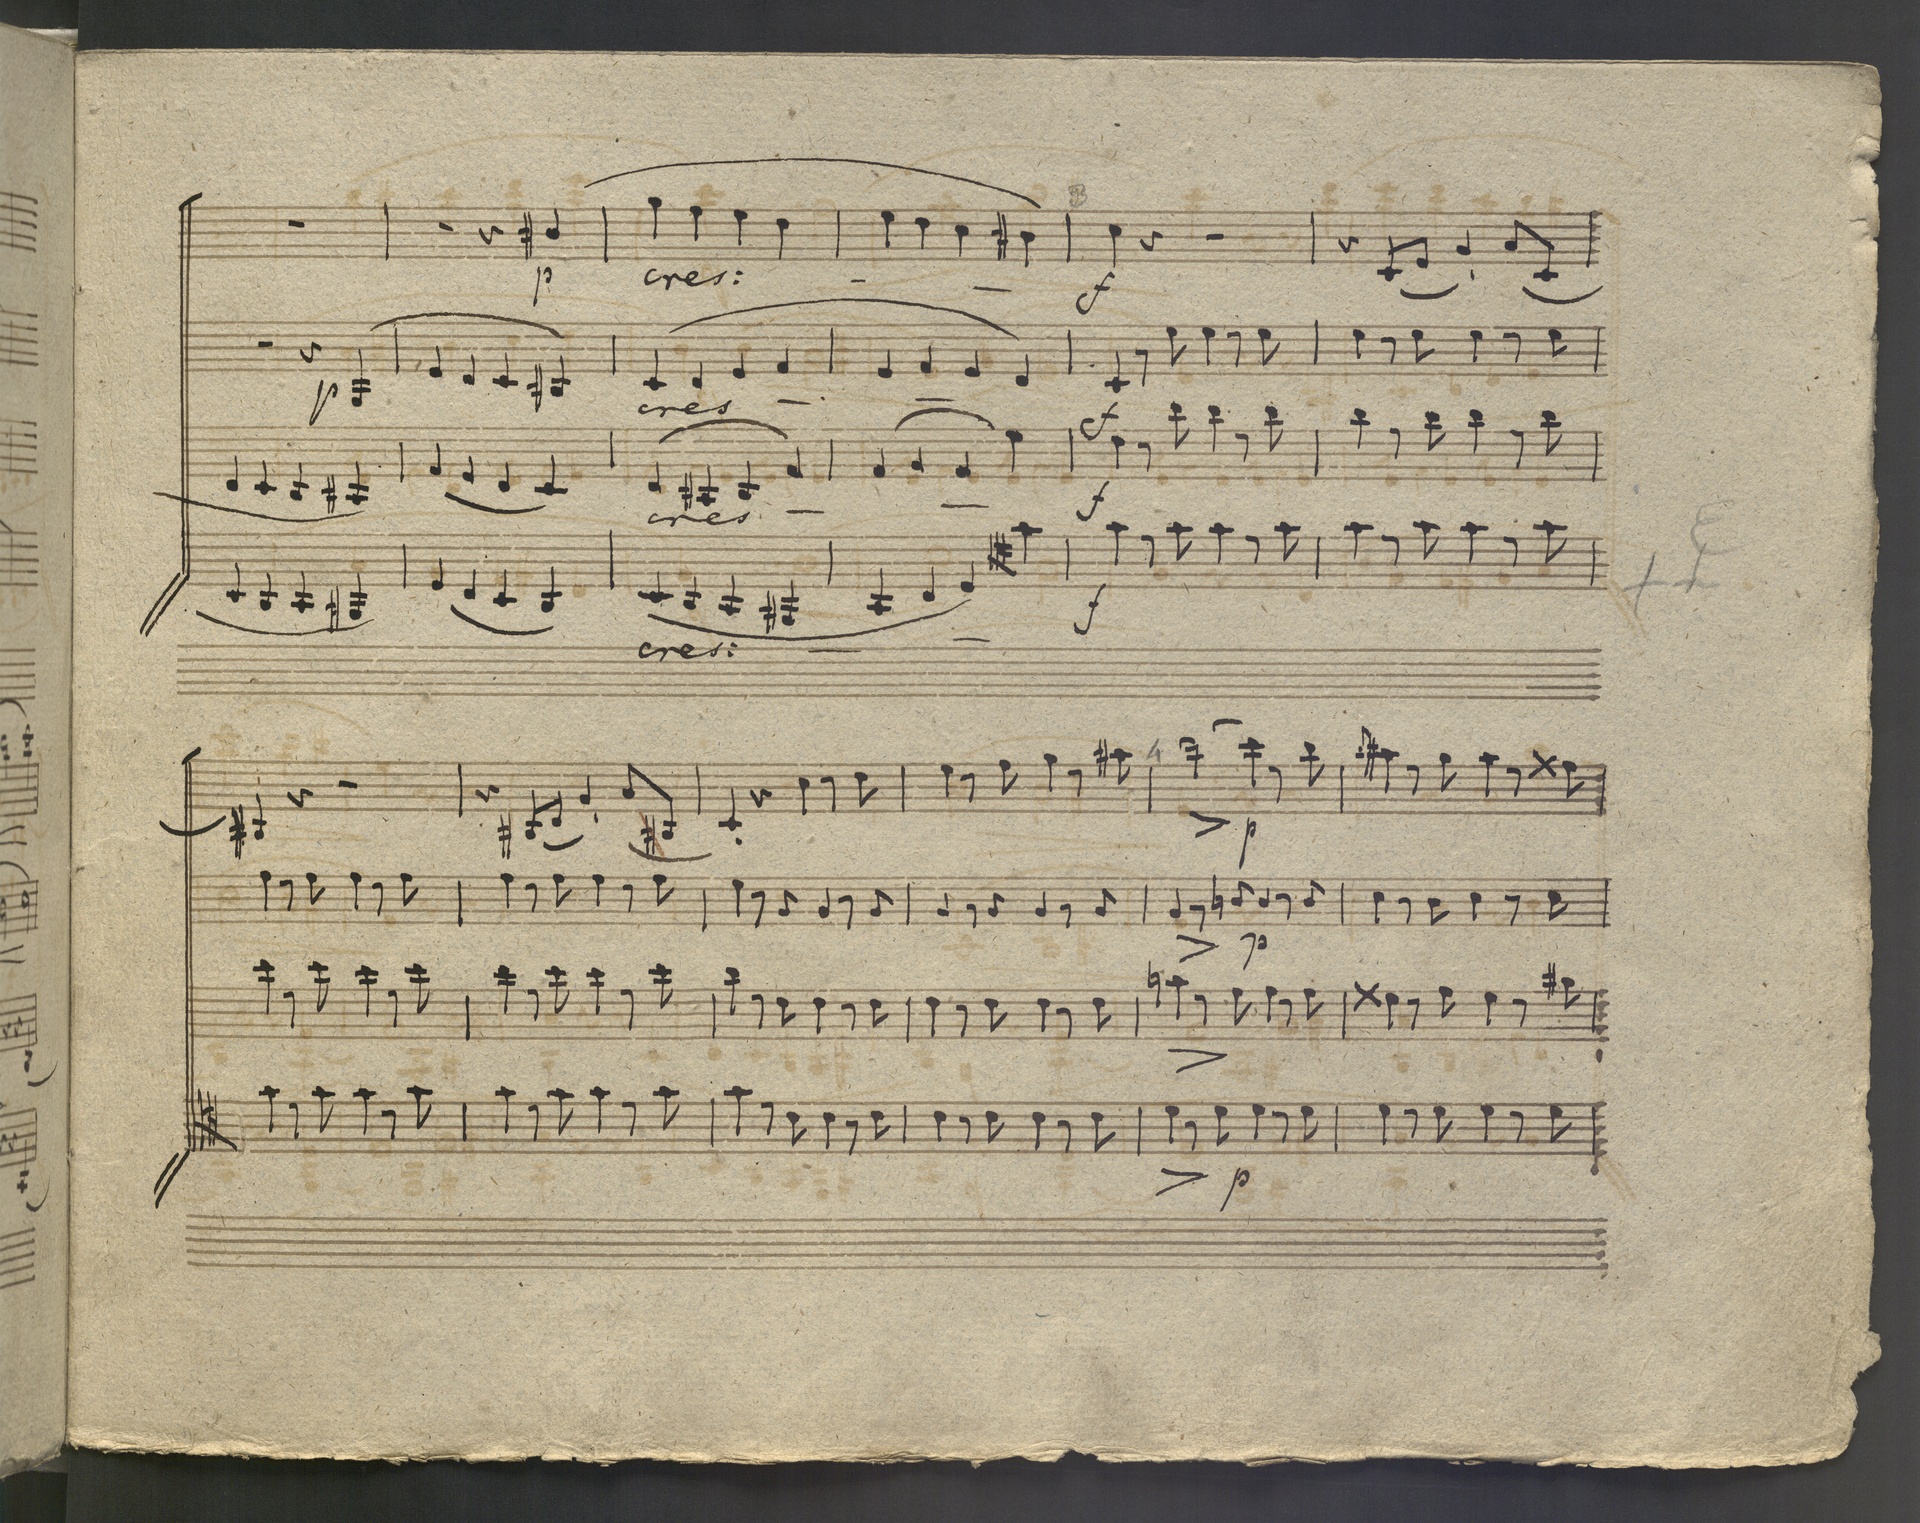 3
p cres:
f
p cres
f
cres
f
cres:
f
4
p
p
p